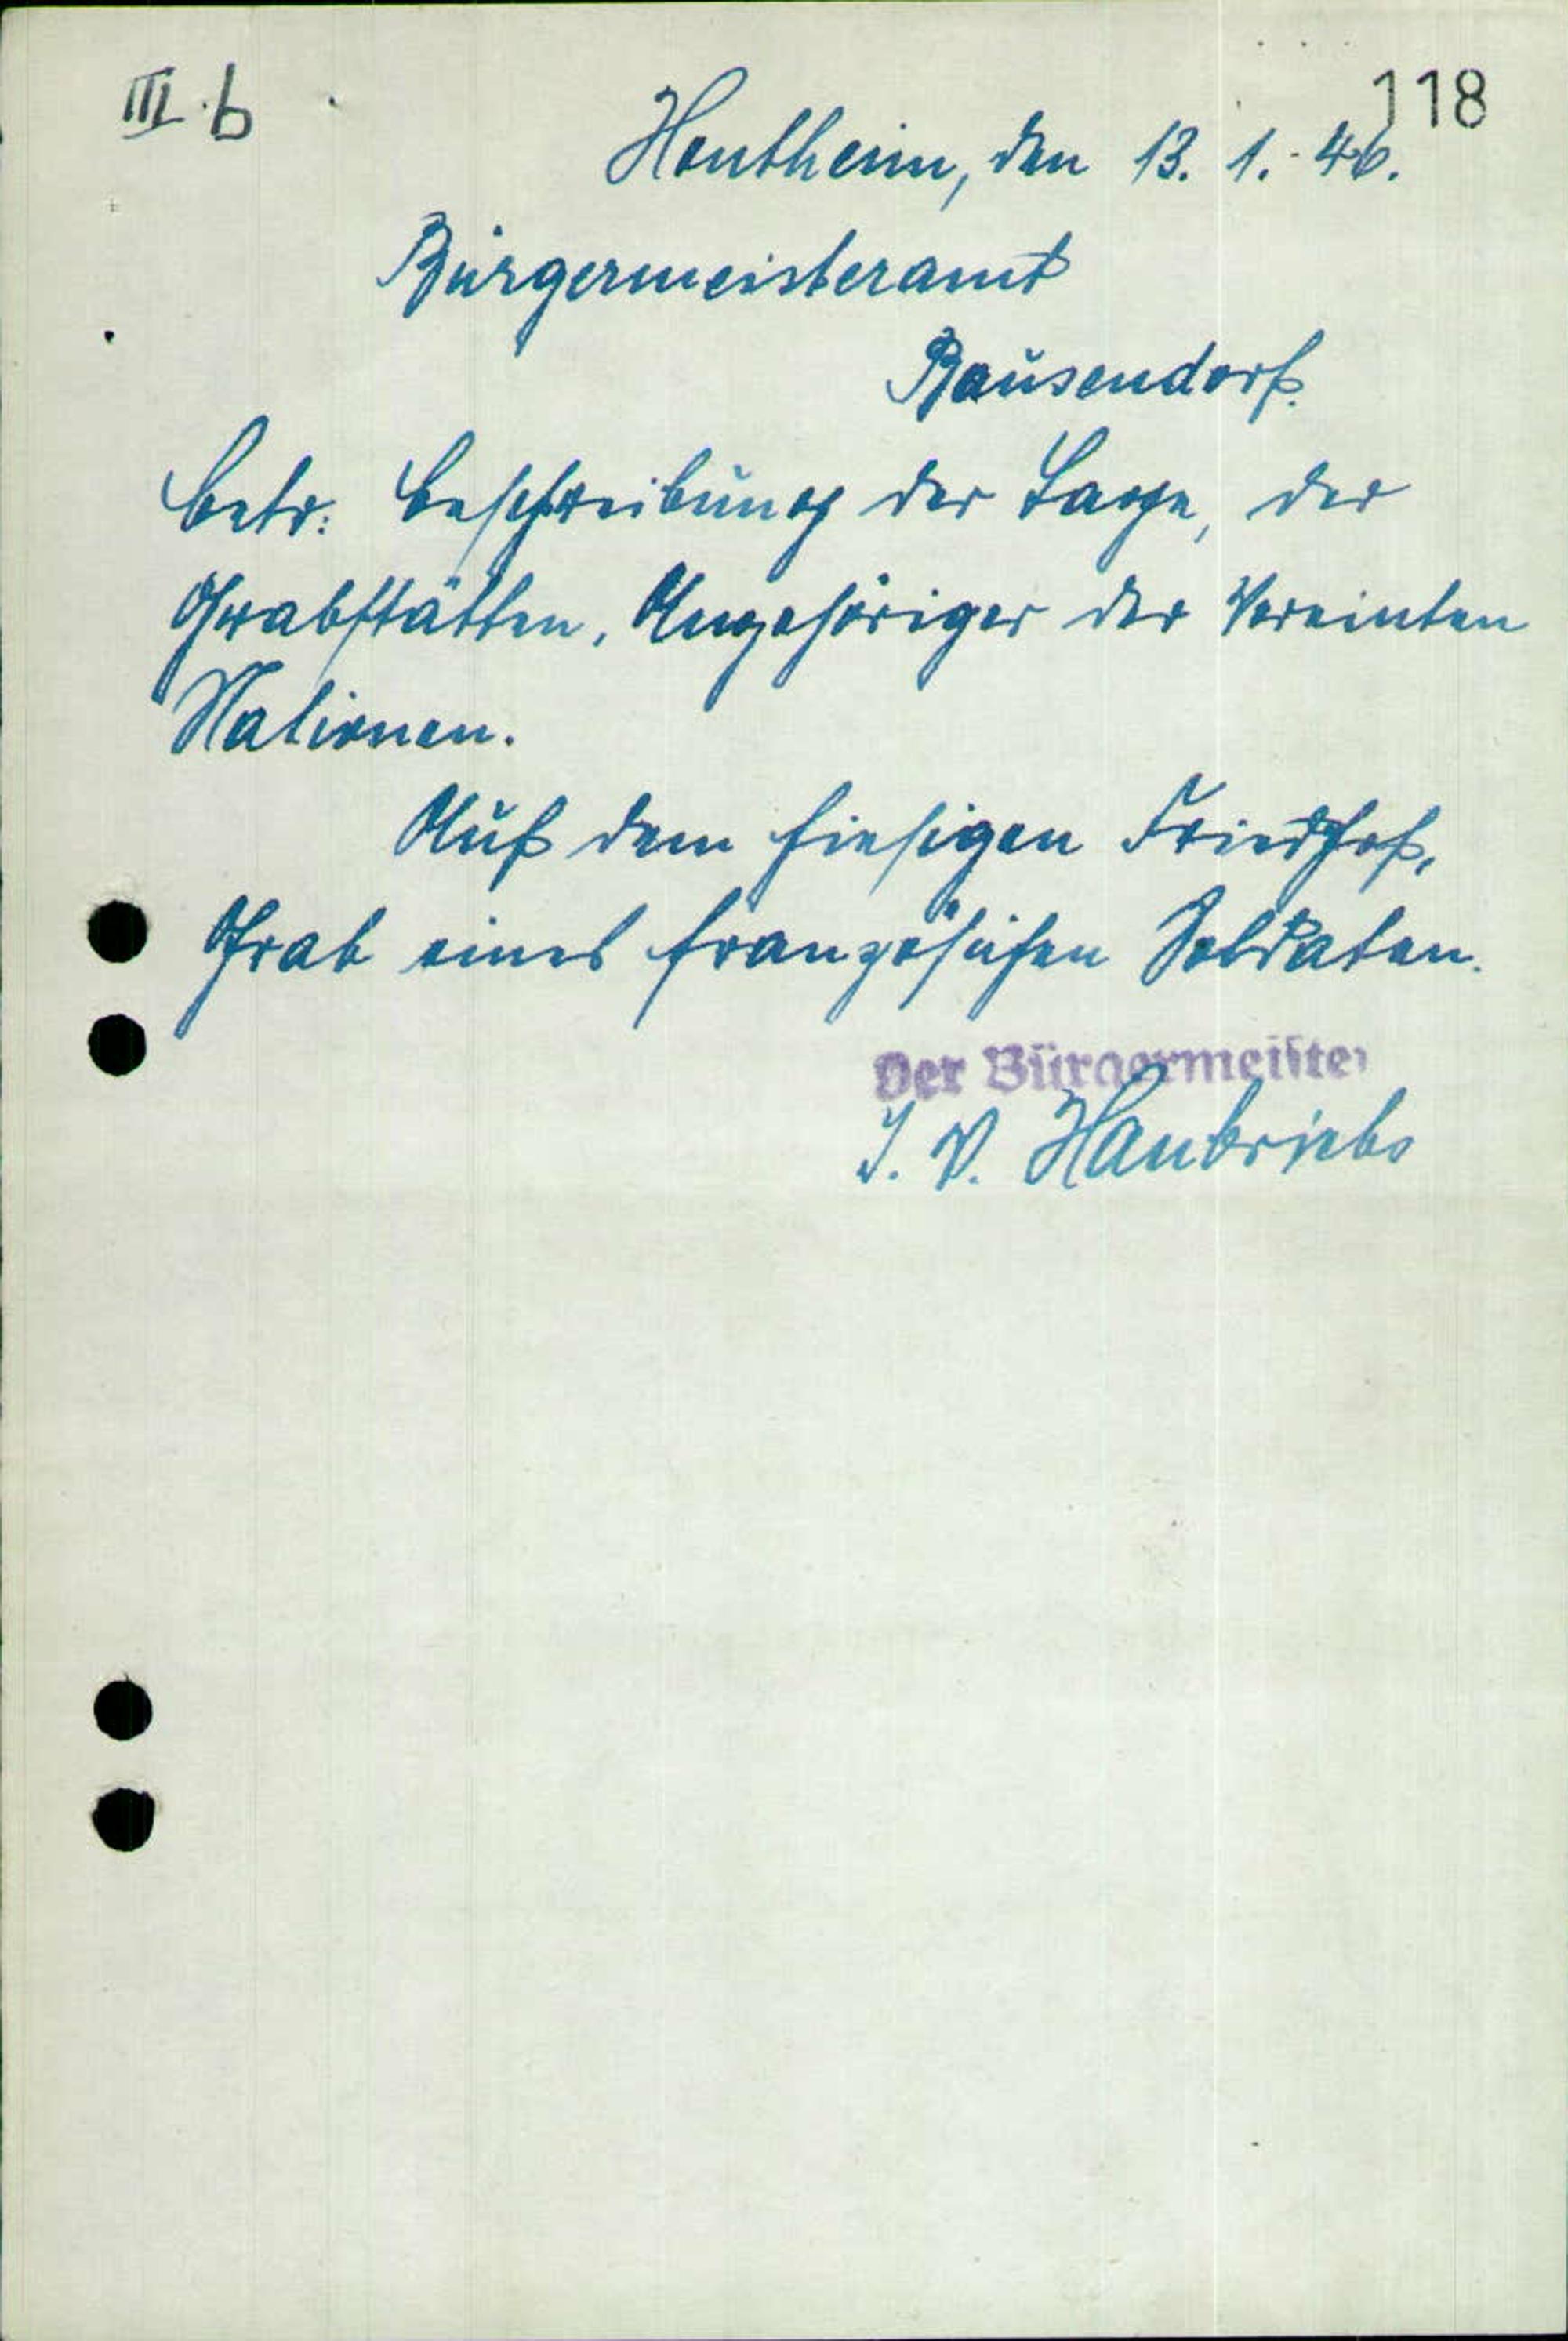 III b
118
Hontheim, den 13. 1. 46.
Bürgermeisteramt
Bausendorf.
Betr: Beschreibung der Lage, der
Grabstätten, Angehöriger der Vereinten
Nationen.
Auf dem hiesigen Friedhof,
Grab eines französischen Soldaten.
Der Bürgermeister
I. V. Haubrichs